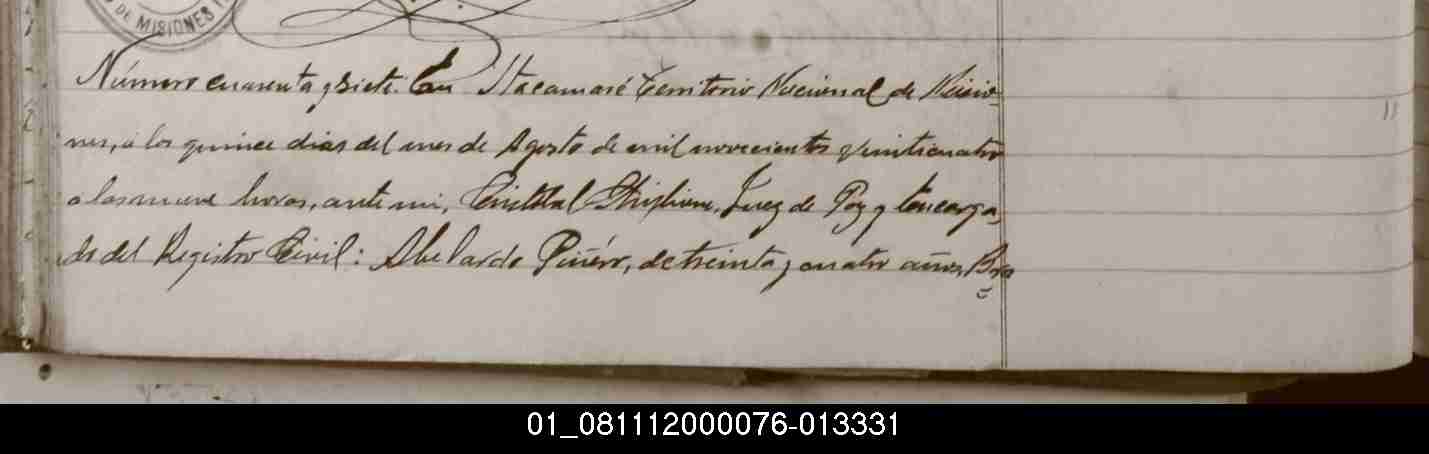 DE MISIONES
Número cuarenta y siete. En Itacaruaré Territorio Nacional de Misio-
nes, á los quince dias del mes de Agosto de mil novecientos veinticuatro
a las nueve horas, ante mi, Juez de Paz y Encarga-
do del Registro Civil: Abelardo Piñero, de treinta y cuatro años, Bra
01_081112000076-013331